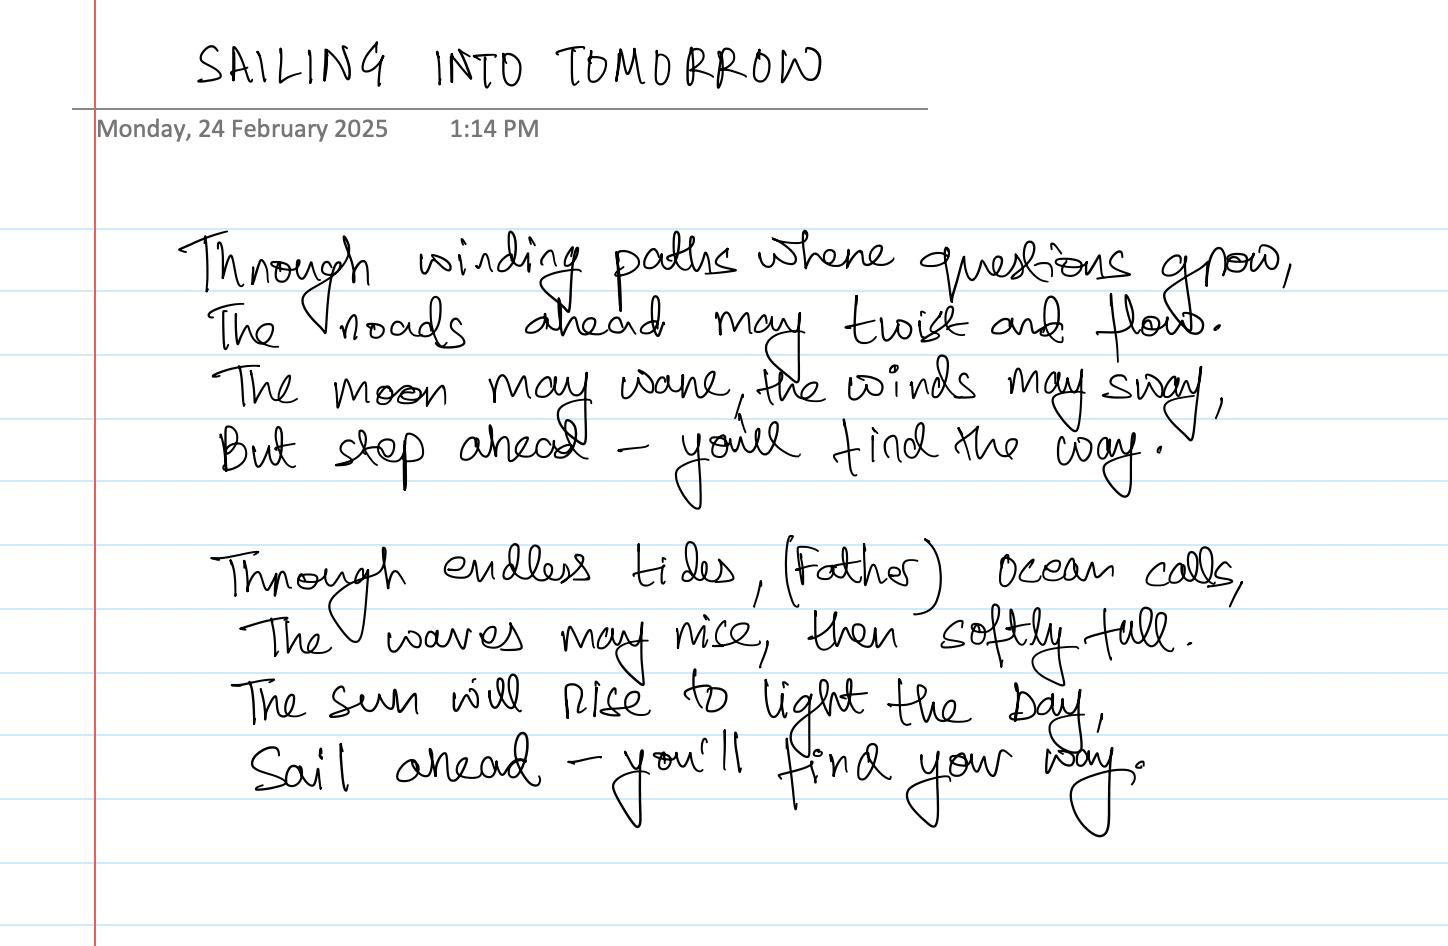 SAILING INTO TOMORROW
Monday, 24 February 2025 1:14 PM
Through winding paths where questions grow,
The roads ahead may twist and flow.
The moon may wane, the winds may sway,
But step ahead - you'll find the way.
Through endless tides, (Father) ocean calls,
The waves may rise, then softly fall.
The sun will rise to light the Day,
Sail ahead - you'll find your way.